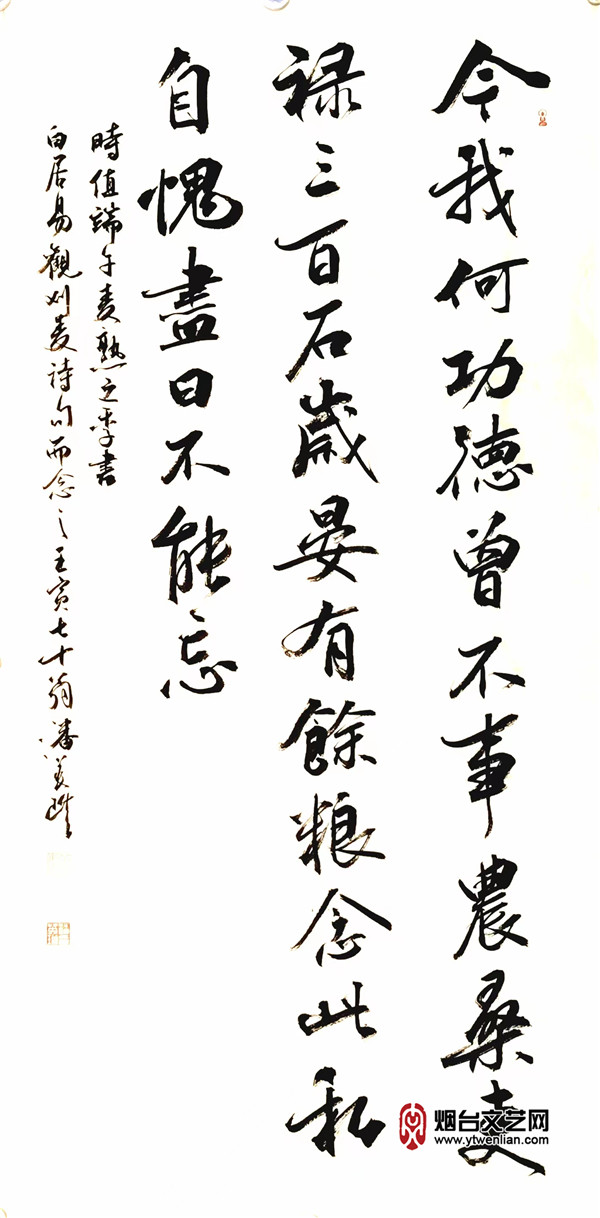 今我何功德曾不事農桑吏
禄三百石歲晏有餘粮念此私
自愧盡日不能忘
時值端午麦熟之季書
白居易觀刈麦詩句而念之壬寅七十翁潘
烟台文艺网
www.ytwenlian.com